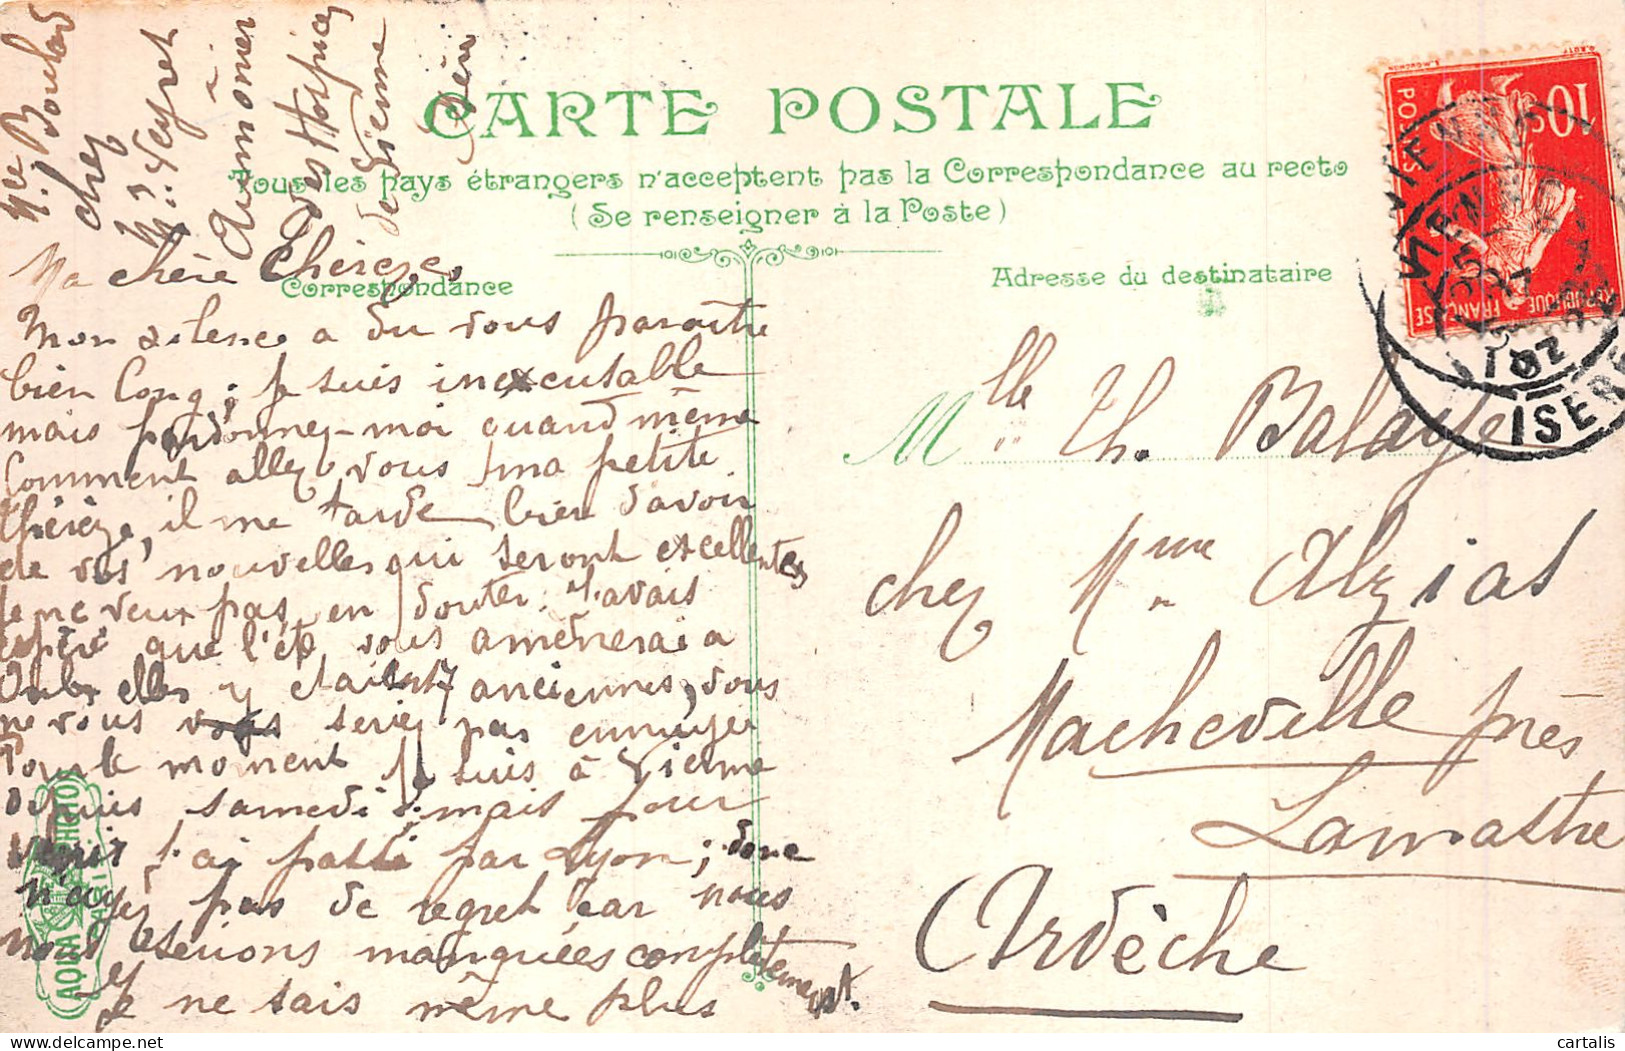 Mlle Boulard
chez
M. Veyret
Aumonier
des Hospices
de Vienne
Isère
CARTE POSTALE
Tous les pays étrangers n'acceptent pas la Correspondance au recto
(Se renseigner à la Poste)
Correspondance
Adresse du destinataire
Ma chère Thérèze,
Mon silence a du vous paraître
bien long ; je suis inexcusable
mais pardonnez-moi quand même
Comment allez vous ma petite
thérèze, il me tarde bien davoir
de vos nouvelles qui seront excellentes
je ne veux pas en douter. J'avais
espéré que l'été vous amènerai a
elles y étaient 17 anciennes, vous
ne vous seriez pas ennuyée
Pour le moment je suis à Vienne
depuis samedi ; mais pour
venir j'ai passé par Lyon ; donc
n'ayez pas de regret car nous
nous serions manquées complètement.
et
Je ne sais même plus
Mlle Th. Balaye
chez Mme Alzias
Macheville près
Lamastre
Ardèche
10
POSTES
REPUBLIQUE FRANÇAISE
VIENNE
ISERE
AQUA PHOTO
PARIS
cartalis